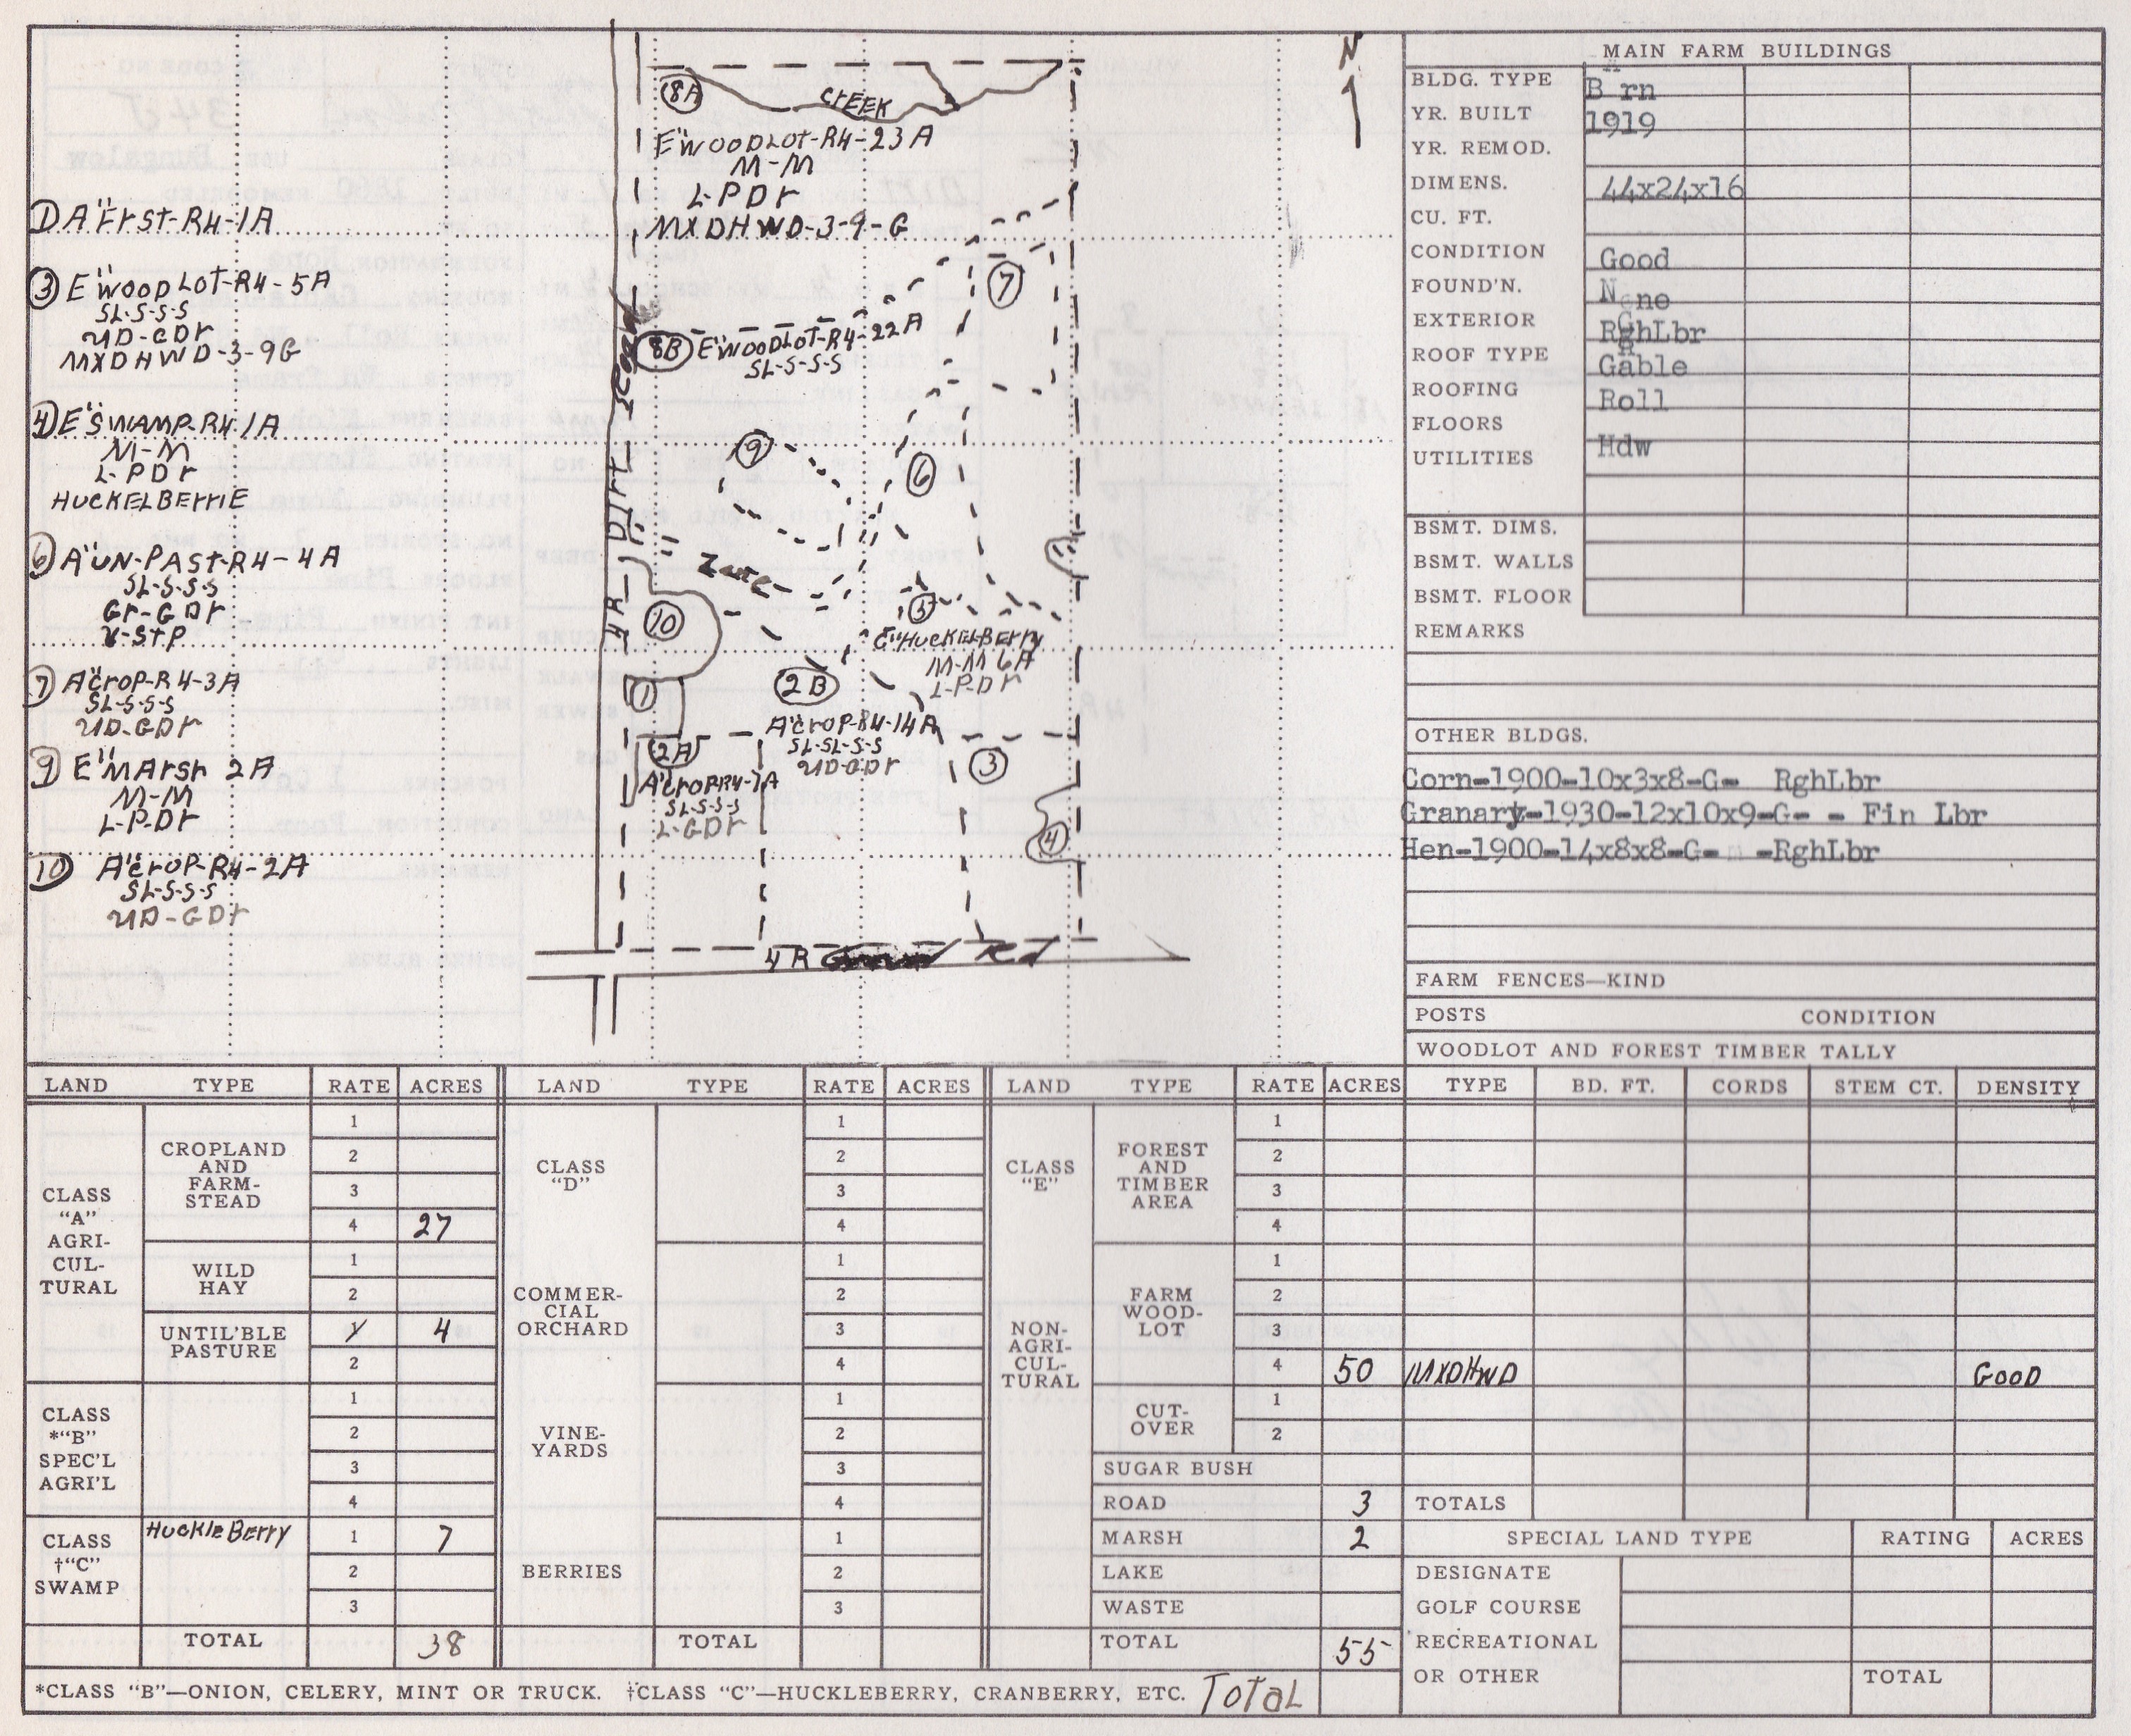 N
8A
CREEK
E" WOODLOT-R4-23A
M-M
L-PDr
MXDHWD-3-9-G
1 A" FrSt-R4-1A
3 E" WOODLOT-R4-5A
SL-S-S-S
UD-GDr
MXDHWD-3-9G
4 E" SWAMP-R4-1A
M-M
L-PDr
HUCKELBErriE
6 A" UN-PASt-R4-4A
SL-S-S-S
Gr-GDr
V-StP
7 A" CrOP-R4-3A
SL-S-S-S
UD-GDr
9 E" MArSh 2A
M-M
L-P-Dr
10 A" CrOP-R4-2A
SL-S-S-S
UD-GDr
7
8B E" WOODLOT-R4-22A
SL-S-S-S
9
6
4R Dirt Road
Lane
10
5
E" HUCKELBErry
M-M 6A
L-P-Dr
1
2B
A" CrOP-R4-14A
SL-SL-S-S
UD-GDr
2A
A" CrOP R4-7A
SL-S-S-S
L-GDr
3
4
4R Rd
MAIN FARM BUILDINGS
BLDG. TYPE B rn
YR. BUILT 1919
YR. REMOD.
DIMENS. 44x24x16
CU. FT.
CONDITION Good
FOUND'N. None
EXTERIOR RghLbr
ROOF TYPE Gable
ROOFING Roll
FLOORS
UTILITIES Hdw
BSMT. DIMS.
BSMT. WALLS
BSMT. FLOOR
REMARKS
OTHER BLDGS.
Corn-1900-10x3x8-G- RghLbr
Granary-1930-12x10x9-G- - Fin Lbr
Hen-1900-14x8x8-G- -RghLbr
FARM FENCES—KIND
POSTS CONDITION
WOODLOT AND FOREST TIMBER TALLY
LAND TYPE RATE ACRES LAND TYPE RATE ACRES LAND TYPE RATE ACRES TYPE BD. FT. CORDS STEM CT. DENSITY
CLASS "A" AGRI-CUL-TURAL
CROPLAND AND FARM-STEAD
1
2
3
4 27
WILD HAY
1
2
UNTIL'BLE PASTURE
1 4
2
CLASS *"B" SPEC'L AGRI'L
1
2
3
4
CLASS †"C" SWAMP
HuckleBerry 1 7
2
3
TOTAL 38
CLASS "D"
1
2
3
4
COMMER-CIAL ORCHARD
1
2
3
4
VINE-YARDS
1
2
3
4
BERRIES
1
2
3
TOTAL
CLASS "E"
NON-AGRI-CUL-TURAL
FOREST AND TIMBER AREA
1
2
3
4
FARM WOOD-LOT
1
2
3
4 50 MXDHWD GOOD
CUT-OVER
1
2
SUGAR BUSH
ROAD 3
MARSH 2
LAKE
WASTE
TOTAL 55
TOTALS
SPECIAL LAND TYPE RATING ACRES
DESIGNATE
GOLF COURSE
RECREATIONAL
OR OTHER TOTAL
*CLASS "B"—ONION, CELERY, MINT OR TRUCK. †CLASS "C"—HUCKLEBERRY, CRANBERRY, ETC. TOTAL